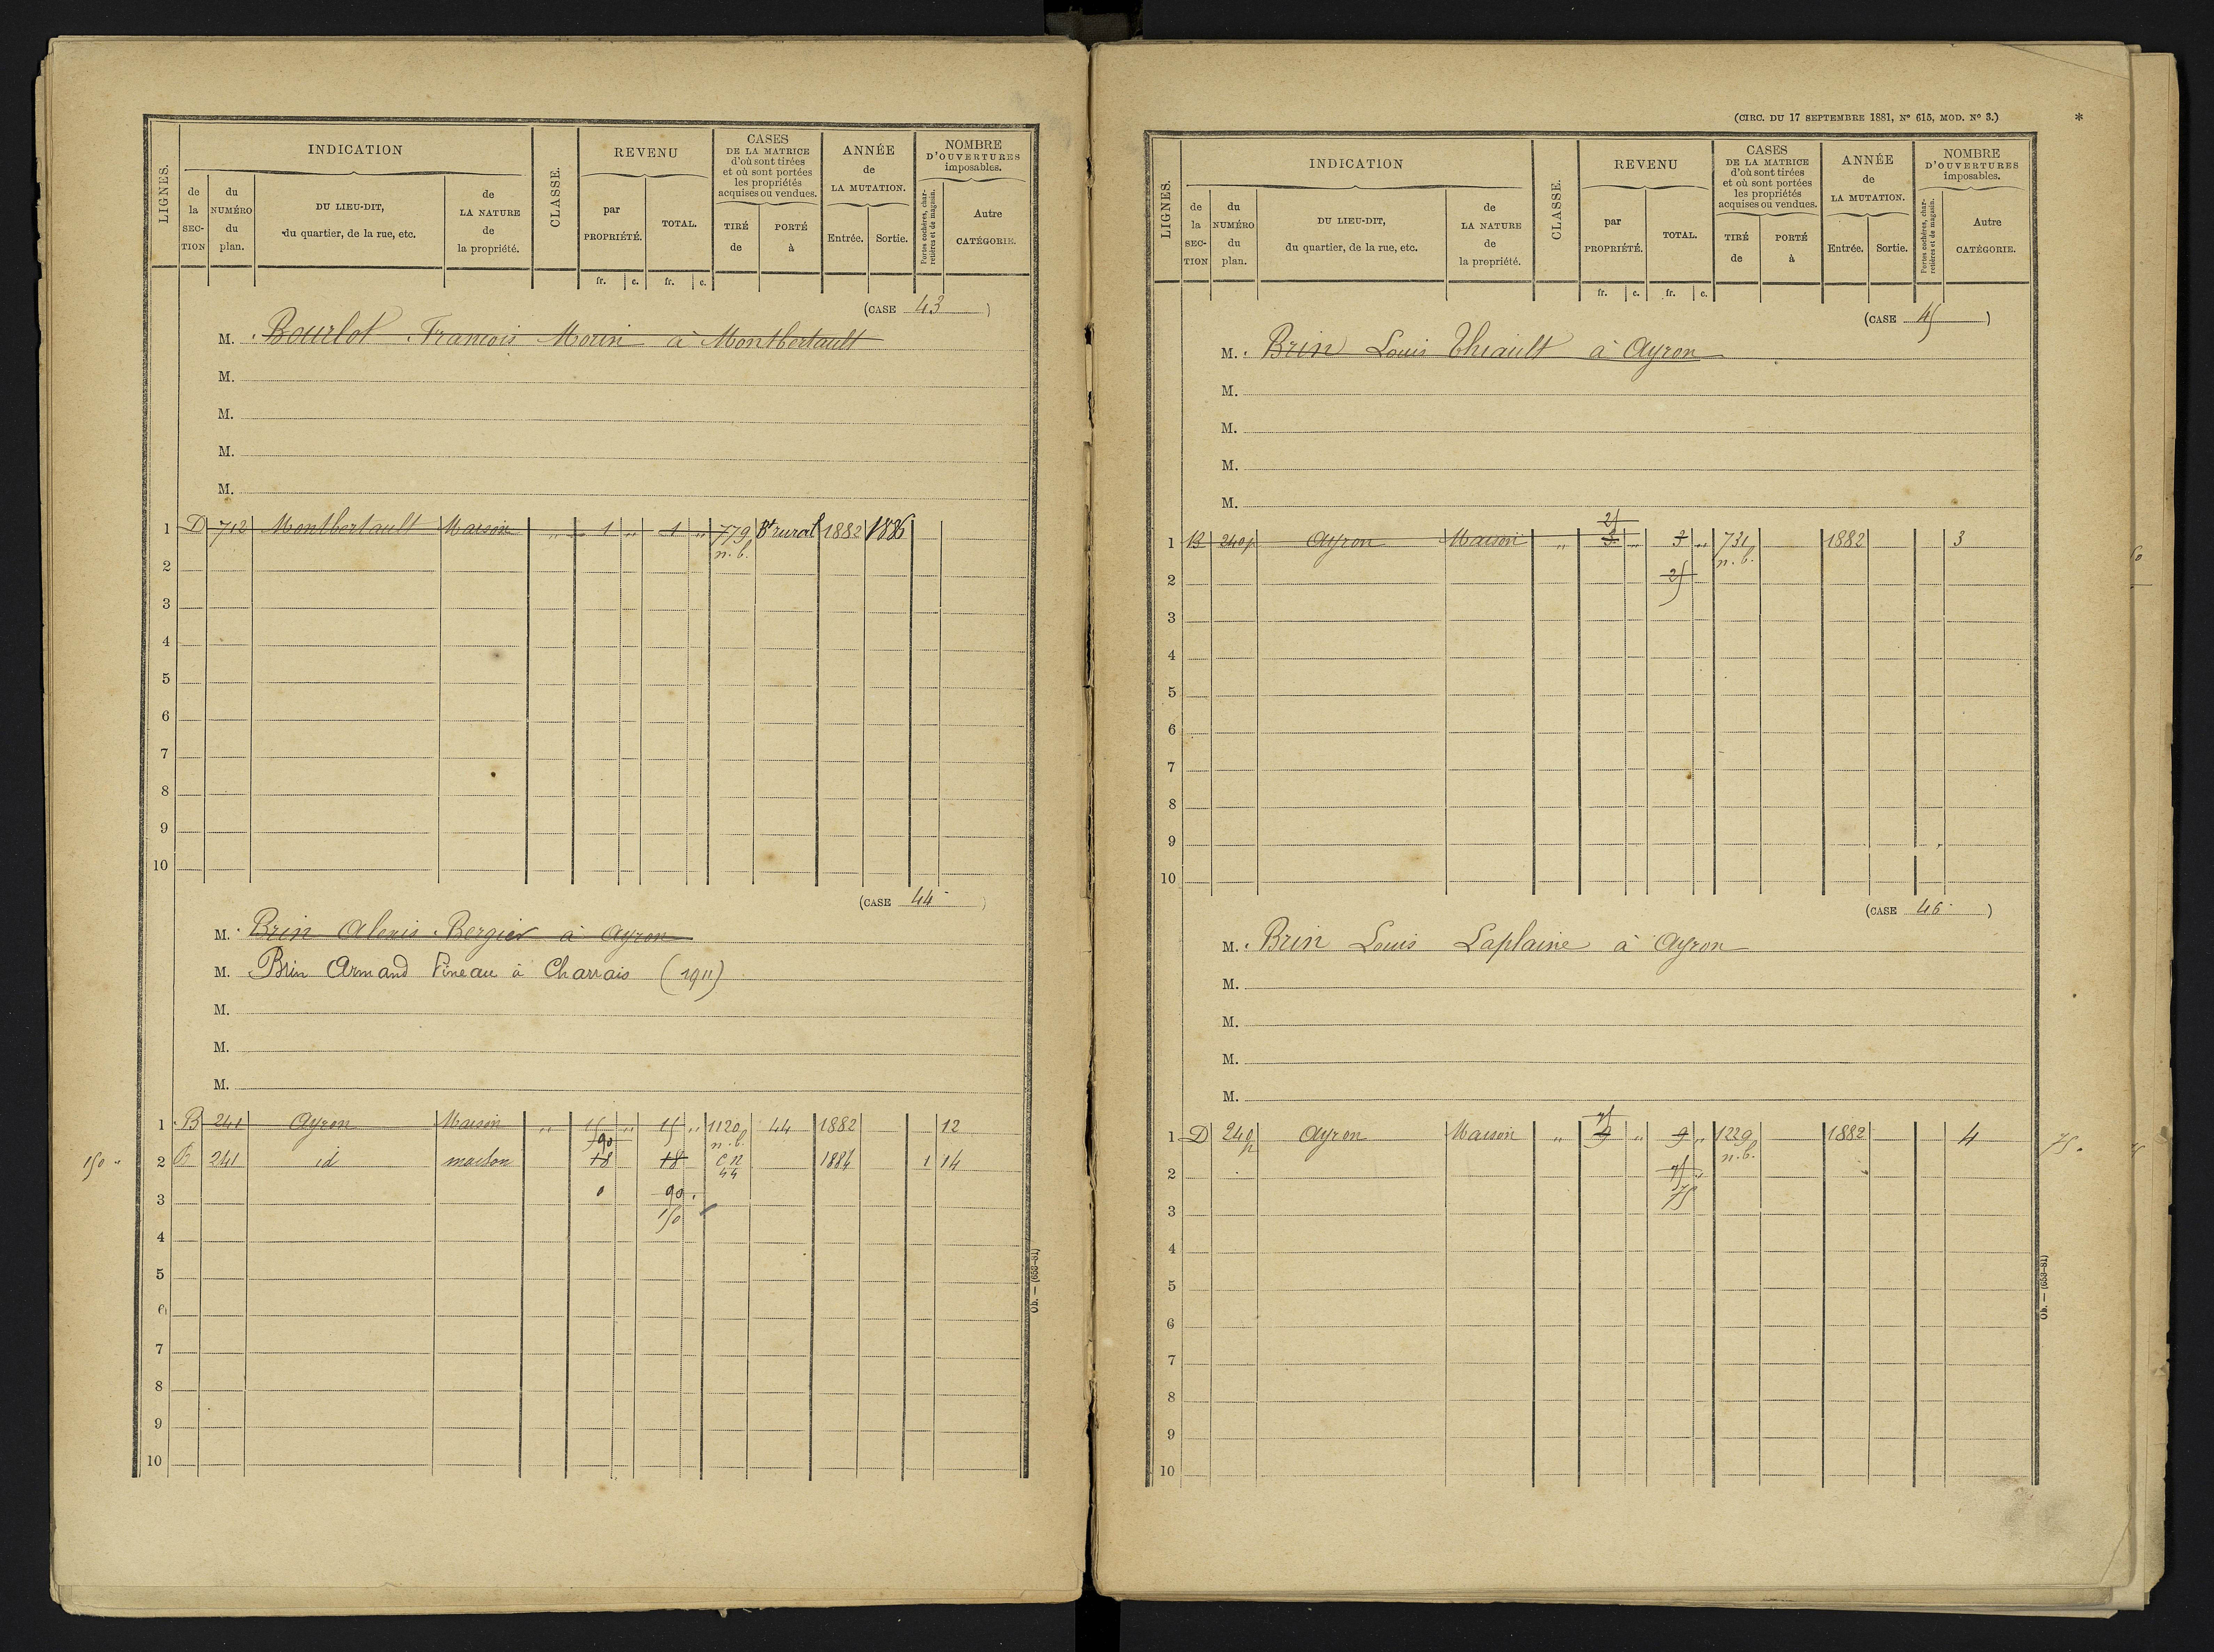 LIGNES. INDICATION CLASSE. REVENU CASES DE LA MATRICE d'où sont tirées et où sont portées les propriétés acquises ou vendues. ANNÉE de LA MUTATION. NOMBRE D'OUVERTURES imposables.
de la SECTION du NUMÉRO du plan. DU LIEU-DIT, du quartier, de la rue, etc. de LA NATURE de la propriété. par PROPRIÉTÉ. TOTAL. TIRÉ de PORTÉ à Entrée. Sortie. Portes cochères, charretières et de magasin. Autre CATÉGORIE.
fr. c. fr. c.
(CASE 43)
M. Bourlot François Morin à Montbertault
M.
M.
M.
M.
1 D 712 Montbertault Maison „ 1 „ 1 „ 779 Bt rural 1882 1886
n. b.
2
3
4
5
6
7
8
9
10
(CASE 44)
M. Brin Alexis Bergier à Ayron
M. Brin Armand Pineau à Charrais (1911)
M.
M.
M.
1 B 241 Ayron Maison „ 15 „ 15 „ 1120 44 1882 12
90 n. b.
150 „ 2 B 241 id maison 18 18 C N 44 1884 1 14
3 90
150
4
5
6
7
8
9
10
Ob. — (653-81)
(CIRC. DU 17 SEPTEMBRE 1881, Nº 615, MOD. Nº 3.) *
LIGNES. INDICATION CLASSE. REVENU CASES DE LA MATRICE d'où sont tirées et où sont portées les propriétés acquises ou vendues. ANNÉE de LA MUTATION. NOMBRE D'OUVERTURES imposables.
de la SECTION du NUMÉRO du plan. DU LIEU-DIT, du quartier, de la rue, etc. de LA NATURE de la propriété. par PROPRIÉTÉ. TOTAL. TIRÉ de PORTÉ à Entrée. Sortie. Portes cochères, charretières et de magasin. Autre CATÉGORIE.
fr. c. fr. c.
(CASE 45)
M. Brin Louis Thiault à Ayron
M.
M.
M.
M.
25
1 B 240p Ayron Maison „ 3 „ 3 „ 731 1882 3
n. b.
2 25
3
4
5
6
7
8
9
10
(CASE 46)
M. Brin Louis Laplaine à Ayron
M.
M.
M.
M.
75
1 D 249p Ayron Maison „ 9 „ 9 „ 1229 1882 4 75
n. b.
2 75
75
3
4
5
6
7
8
9
10
Ob. — (653-81)